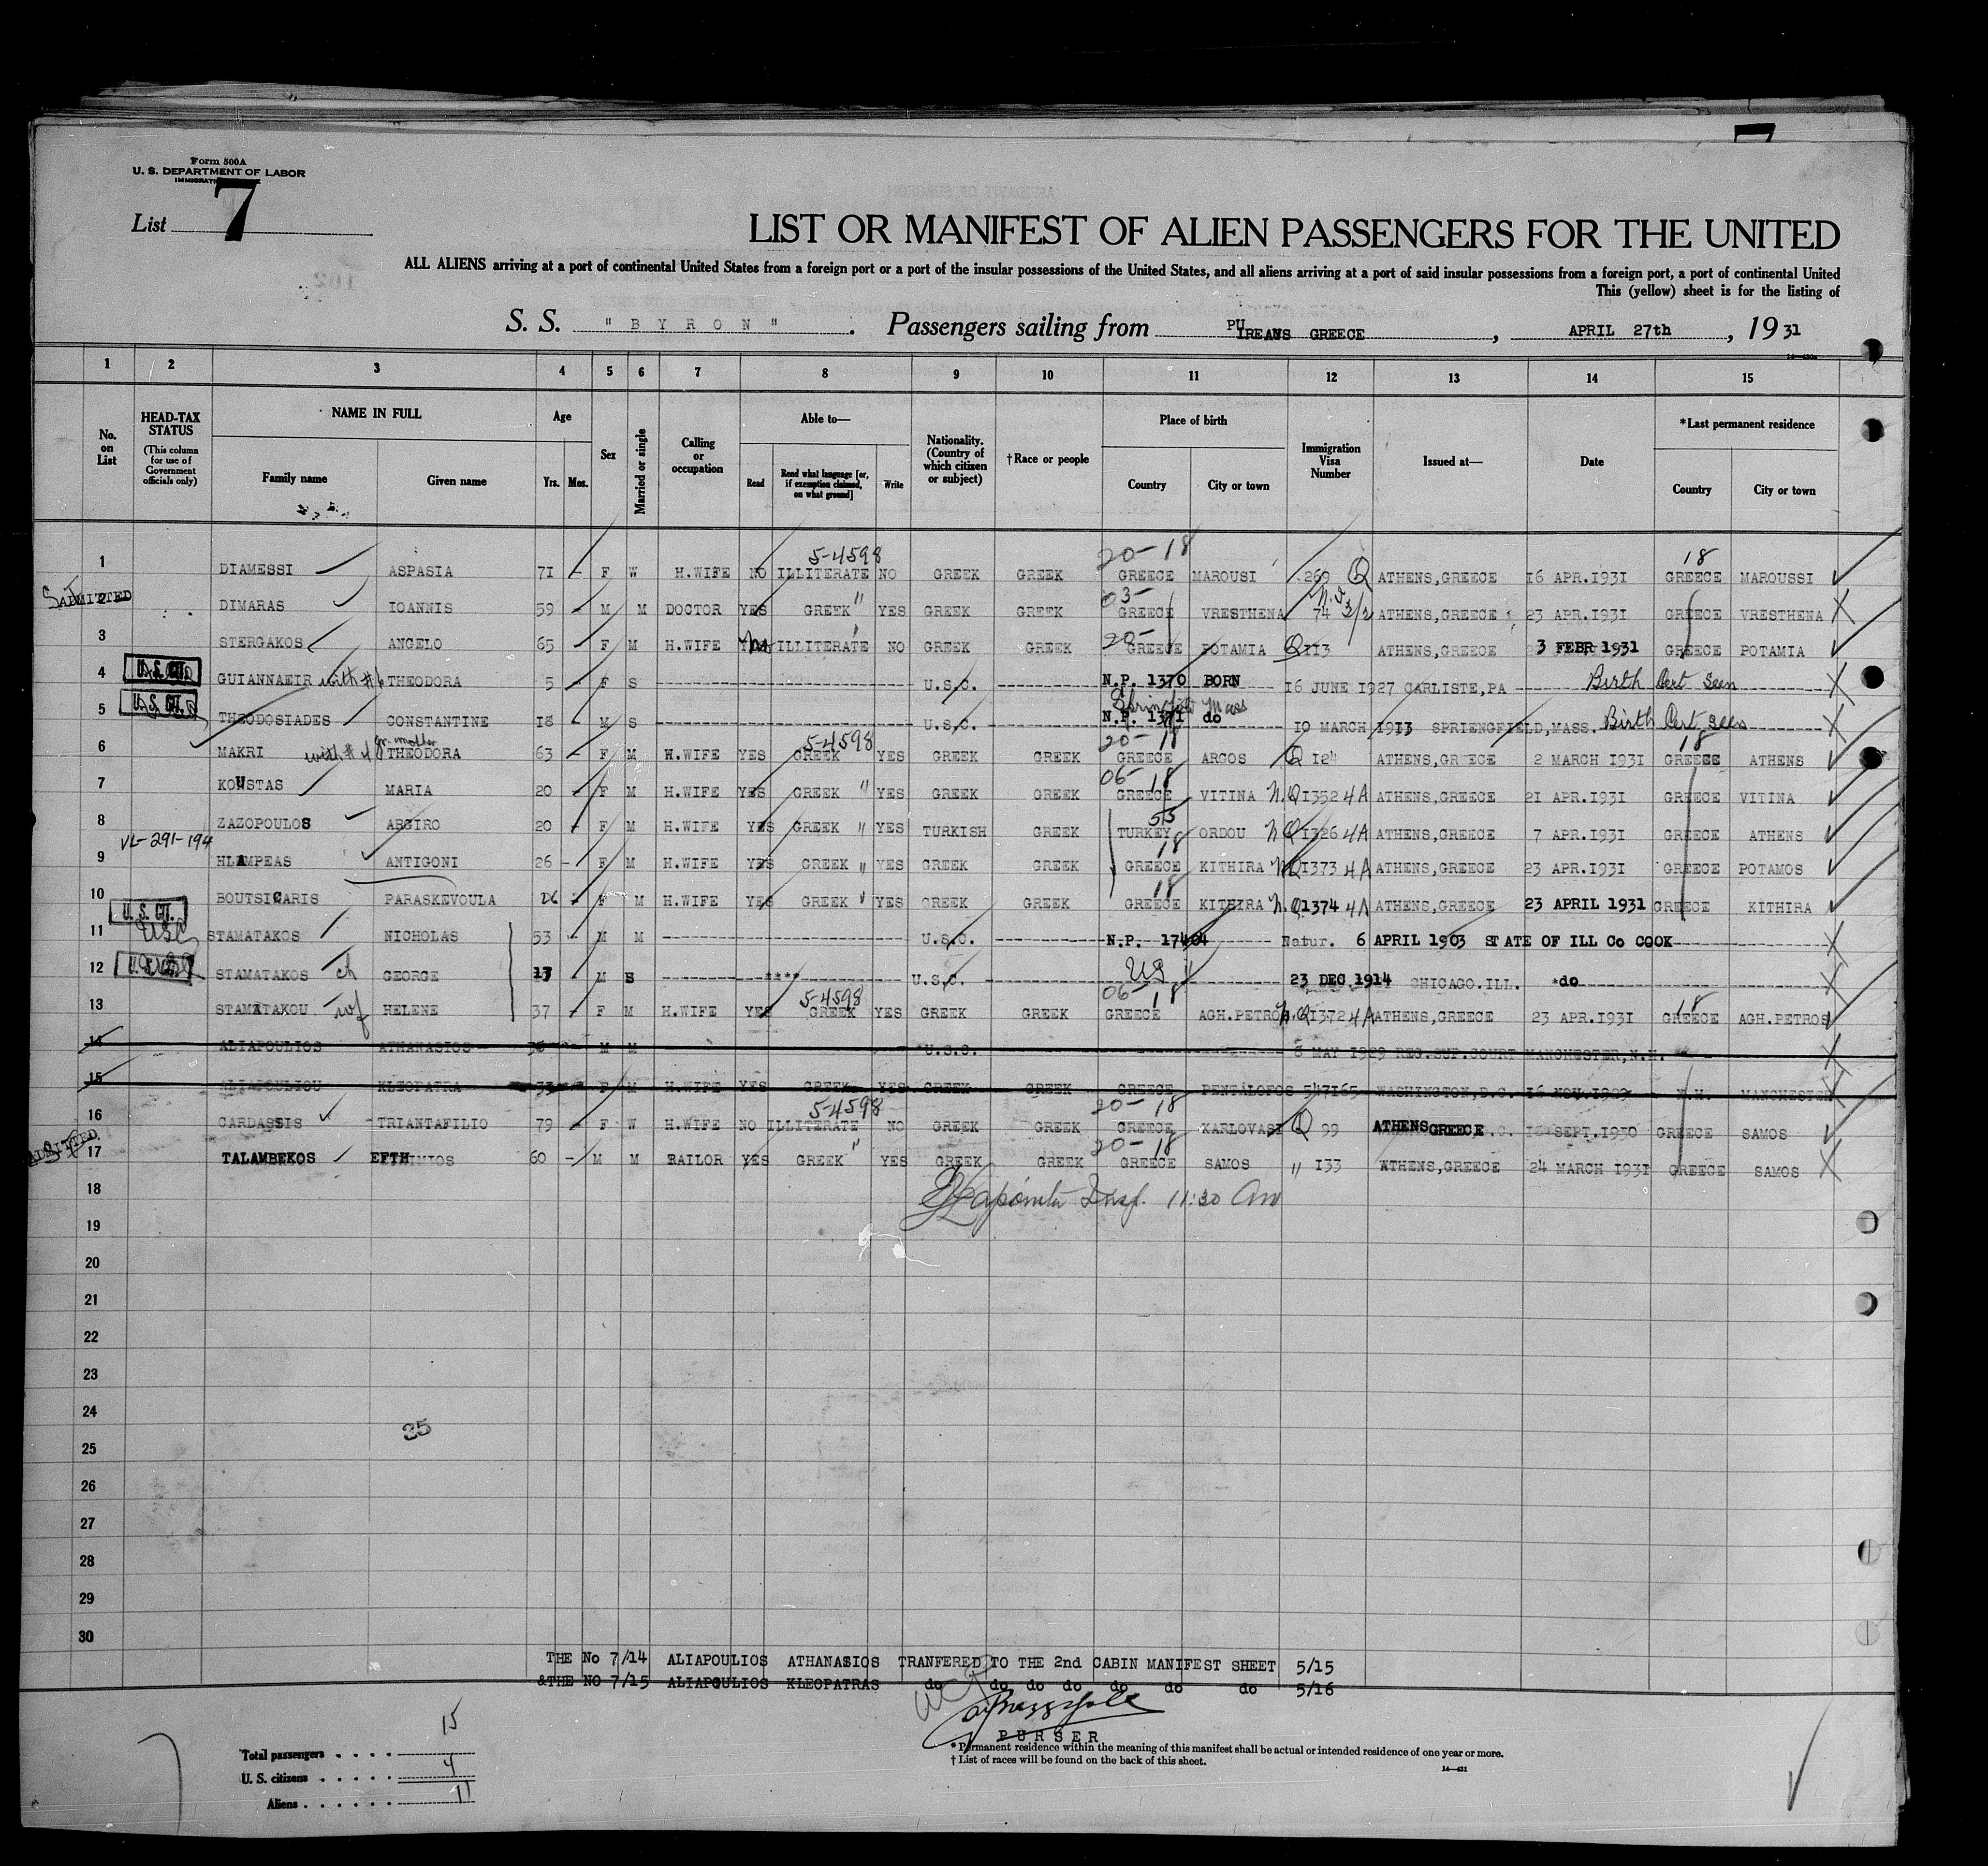 7
Form 500A
U. S. DEPARTMENT OF LABOR
List 7
LIST OR MANIFEST OF ALIEN PASSENGERS FOR THE UNITED
ALL ALIENS arriving at a port of continental United States from a foreign port or a port of the insular possessions of the United States, and all aliens arriving at a port of said insular possessions from a foreign port, a port of continental United
This (yellow) sheet is for the listing of
S. S. "BYRON". Passengers sailing from PUIREANS GREECE, APRIL 27th, 1931
1 2 3 4 5 6 7 8 9 10 11 12 13 14 15
No. on List
HEAD-TAX STATUS (This column for use of Government officials only)
NAME IN FULL
Family name Given name
Age Yrs. Mos.
Sex
Married or single
Calling or occupation
Able to—
Read Read what language [or, if exemption claimed, on what ground] Write
Nationality. (Country of which citizen or subject)
†Race or people
Place of birth
Country City or town
Immigration Visa Number
Issued at—
Date
*Last permanent residence
Country City or town
5-4598 20-18 18
1 DIAMESSI ASPASIA 71 - F W H.WIFE NO ILLITERATE NO GREEK GREEK GREECE MAROUSI 269 Q ATHENS,GREECE 16 APR.1931 GREECE MAROUSSI
ADMITTED 03-
2 DIMARAS IOANNIS 59 - M M DOCTOR YES GREEK " YES GREEK GREEK GREECE VRESTHENA 74 3/2 ATHENS,GREECE 23 APR.1931 GREECE VRESTHENA
20-
3 STERGAKOS ANGELO 65 - F M H.WIFE No ILLITERATE NO GREEK GREEK GREECE POTAMIA Q 113 ATHENS,GREECE 3 FEBR 1931 GREECE POTAMIA
4 U.S. CIT. GUIANNAEIR with #6 THEODORA 5 - F S U.S.C. N.P. 1370 BORN 16 JUNE 1927 CARLISTE,PA Birth Cert Seen
Springfield Mass
5 U.S. CIT. THEODOSIADES CONSTANTINE 18 - M S U.S.C. N.P. 1371 do 10 MARCH 1913 SPRIENGFIELD,MASS. Birth Cert seen
gr. mother 5-4598 20-18 18
6 MAKRI with #4 THEODORA 63 - F M H.WIFE YES GREEK YES GREEK GREEK GREECE ARGOS Q 124 ATHENS,GREECE 2 MARCH 1931 GREECE ATHENS
06-18
7 KOUSTAS MARIA 20 - F M H.WIFE YES GREEK " YES GREEK GREEK GREECE VITINA N.Q 1352 4A ATHENS,GREECE 21 APR.1931 GREECE VITINA
55
8 ZAZOPOULOS ARGIRO 20 - F M H.WIFE YES GREEK " YES TURKISH GREEK TURKEY ORDOU NQ 1326 4A ATHENS,GREECE 7 APR.1931 GREECE ATHENS
VL-291-194 18
9 HLAMPEAS ANTIGONI 26 - F M H.WIFE YES GREEK " YES GREEK GREEK GREECE KITHIRA NQ 1373 4A ATHENS,GREECE 23 APR.1931 GREECE POTAMOS
18
10 BOUTSICARIS PARASKEVOULA 26 - F M H.WIFE YES GREEK " YES GREEK GREEK GREECE KITHIRA N.Q 1374 4A ATHENS,GREECE 23 APRIL 1931 GREECE KITHIRA
U. S. CIT.
11 USC STAMATAKOS NICHOLAS 53 - M M U.S.C. N.P. 17404 Natur. 6 APRIL 1903 STATE OF ILL Co COOK
12 STAMATAKOS ch GEORGE 17 - M S **** U.S.C. US 23 DEC 1914 CHICAGO.ILL. *do
5-4598 06-18 18
13 STAMATAKOU wf HELENE 37 - F M H.WIFE YES GREEK YES GREEK GREEK GREECE AGH.PETROS N.Q 1372 4A ATHENS,GREECE 23 APR.1931 GREECE AGH.PETROS
14 ALIAPOULIOS ATHANASIOS M M U.S.C. 8 MAY 1929 REG.SUP.COURT MANCHESTER,N.H.
15 ALIAPOULIOU KLEOPATRA 33 - F M H.WIFE YES GREEK YES GREEK GREEK GREECE PENTALOFOS 547165 WASHINGTON,D.C. 16 NOV.1929 N.H. MANCHESTER
5-4598 20-18
16 CARDASSIS TRIANTAFILIO 79 - F W H.WIFE NO ILLITERATE NO GREEK GREEK GREECE KARLOVASI Q 99 ATHENS GREECE 16 SEPT.1930 GREECE SAMOS
ADMITTED 20-18
17 TALAMBEKOS EFTHIMIOS 60 - M M SAILOR YES GREEK " YES GREEK GREEK GREECE SAMOS " 133 ATHENS,GREECE 24 MARCH 1931 GREECE SAMOS
18 Insp. 11:30 Am
19
20
21
22
23
24
25
25
26
27
28
29
30
THE No 7/14 ALIAPOULIOS ATHANASIOS TRANFERED TO THE 2nd CABIN MANIFEST SHEET 5/15
&THE NO 7/15 ALIAPOULIOS KLEOPATRAS do do do do do do do 5/16
PURSER
Total passengers . . . . 15
U. S. citizens . . . . . 4
Aliens . . . . . . 11
*Permanent residence within the meaning of this manifest shall be actual or intended residence of one year or more.
†List of races will be found on the back of this sheet.
14—431